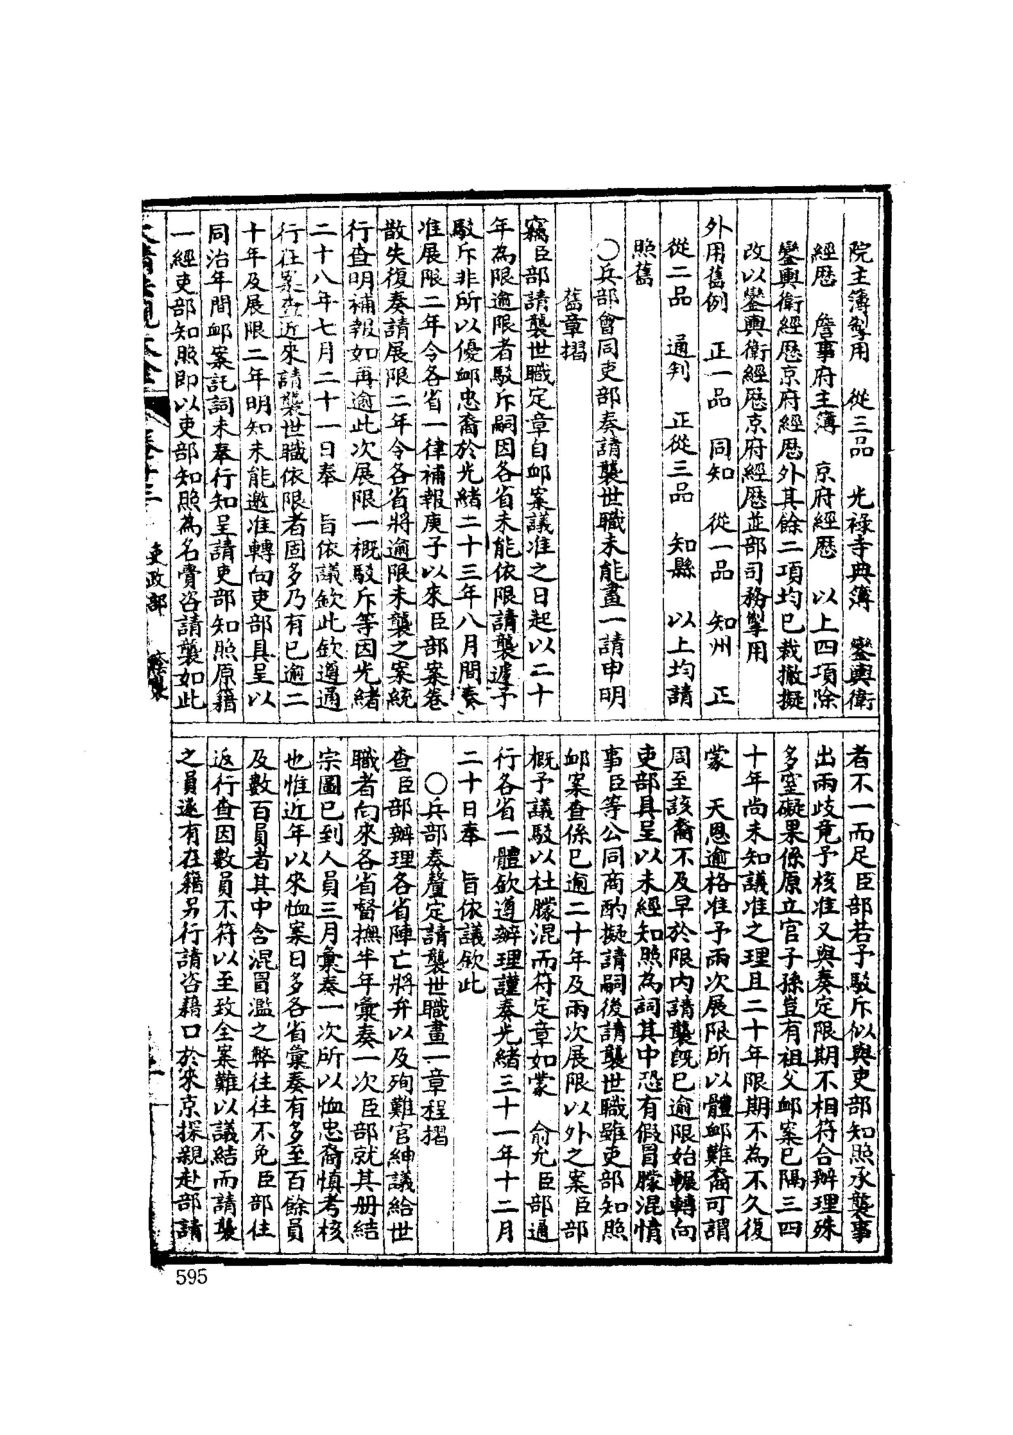 院主簿掣用　從三品　光祿寺典簿　鑾輿衛
經歷　詹事府主簿　京府經歷　以上四項除
鑾輿衛經歷京府經歷外其餘二項均已裁撤擬
改以鑾輿衛經歷京府經歷並部司務掣用
外用舊例　正一品　同知　從一品　知州　正
從二品　通判　正從三品　知縣　以上均請
照舊
〇兵部會同吏部奏請襲世職未能畫一請申明
舊章摺
竊臣部請襲世職定章自卹案議准之日起以二十
年為限逾限者駁斥嗣因各省未能依限請襲遽予
駁斥非所以優卹忠裔於光緒二十三年八月間奏
准展限二年令各省一律補報庚子以來臣部案卷
散失復奏請展限二年令各省將逾限未襲之案統
行查明補報如再逾此次展限一概駁斥等因光緒
二十八年七月二十一日奉　旨依議欽此欽遵通
行在案查近來請襲世職依限者固多乃有已逾二
十年及展限二年明知未能邀准轉向吏部具呈以
同治年間卹案託詞未奉行知呈請吏部知照原籍
一經吏部知照即以吏部知照為名賫咨請襲如此
吏政部
者不一而足臣部若予駁斥似與吏部知照承襲事
出兩歧竟予核准又與奏定限期不相符合辦理殊
多窒礙果係原立官子孫豈有祖父卹案已隔三四
十年尚未知議准之理且二十年限期不為不久復
蒙　天恩逾格准予兩次展限所以體卹難裔可謂
周至該裔不及早於限內請襲既已逾限始輾轉向
吏部具呈以未經知照為詞其中恐有假冒朦混情
事臣等公同商酌擬請嗣後請襲世職雖吏部知照
卹案查係已逾二十年及兩次展限以外之案臣部
概予議駁以杜朦混而符定章如蒙　俞允臣部通
行各省一體欽遵辦理謹奏光緒三十一年十二月
二十日奉　旨依議欽此
〇兵部奏釐定請襲世職畫一章程摺
查臣部辦理各省陣亡將弁以及殉難官紳議給世
職者向來各省督撫半年彙奏一次臣部就其册結
宗圖已到人員三月彙奏一次所以恤忠裔慎考核
也惟近年以來恤案日多各省彙奏有多至百餘員
及數百員者其中含混冒濫之弊往往不免臣部往
返行查因數員不符以至致全案難以議結而請襲
之員遂有在籍另行請咨藉口於來京探親赴部請
595